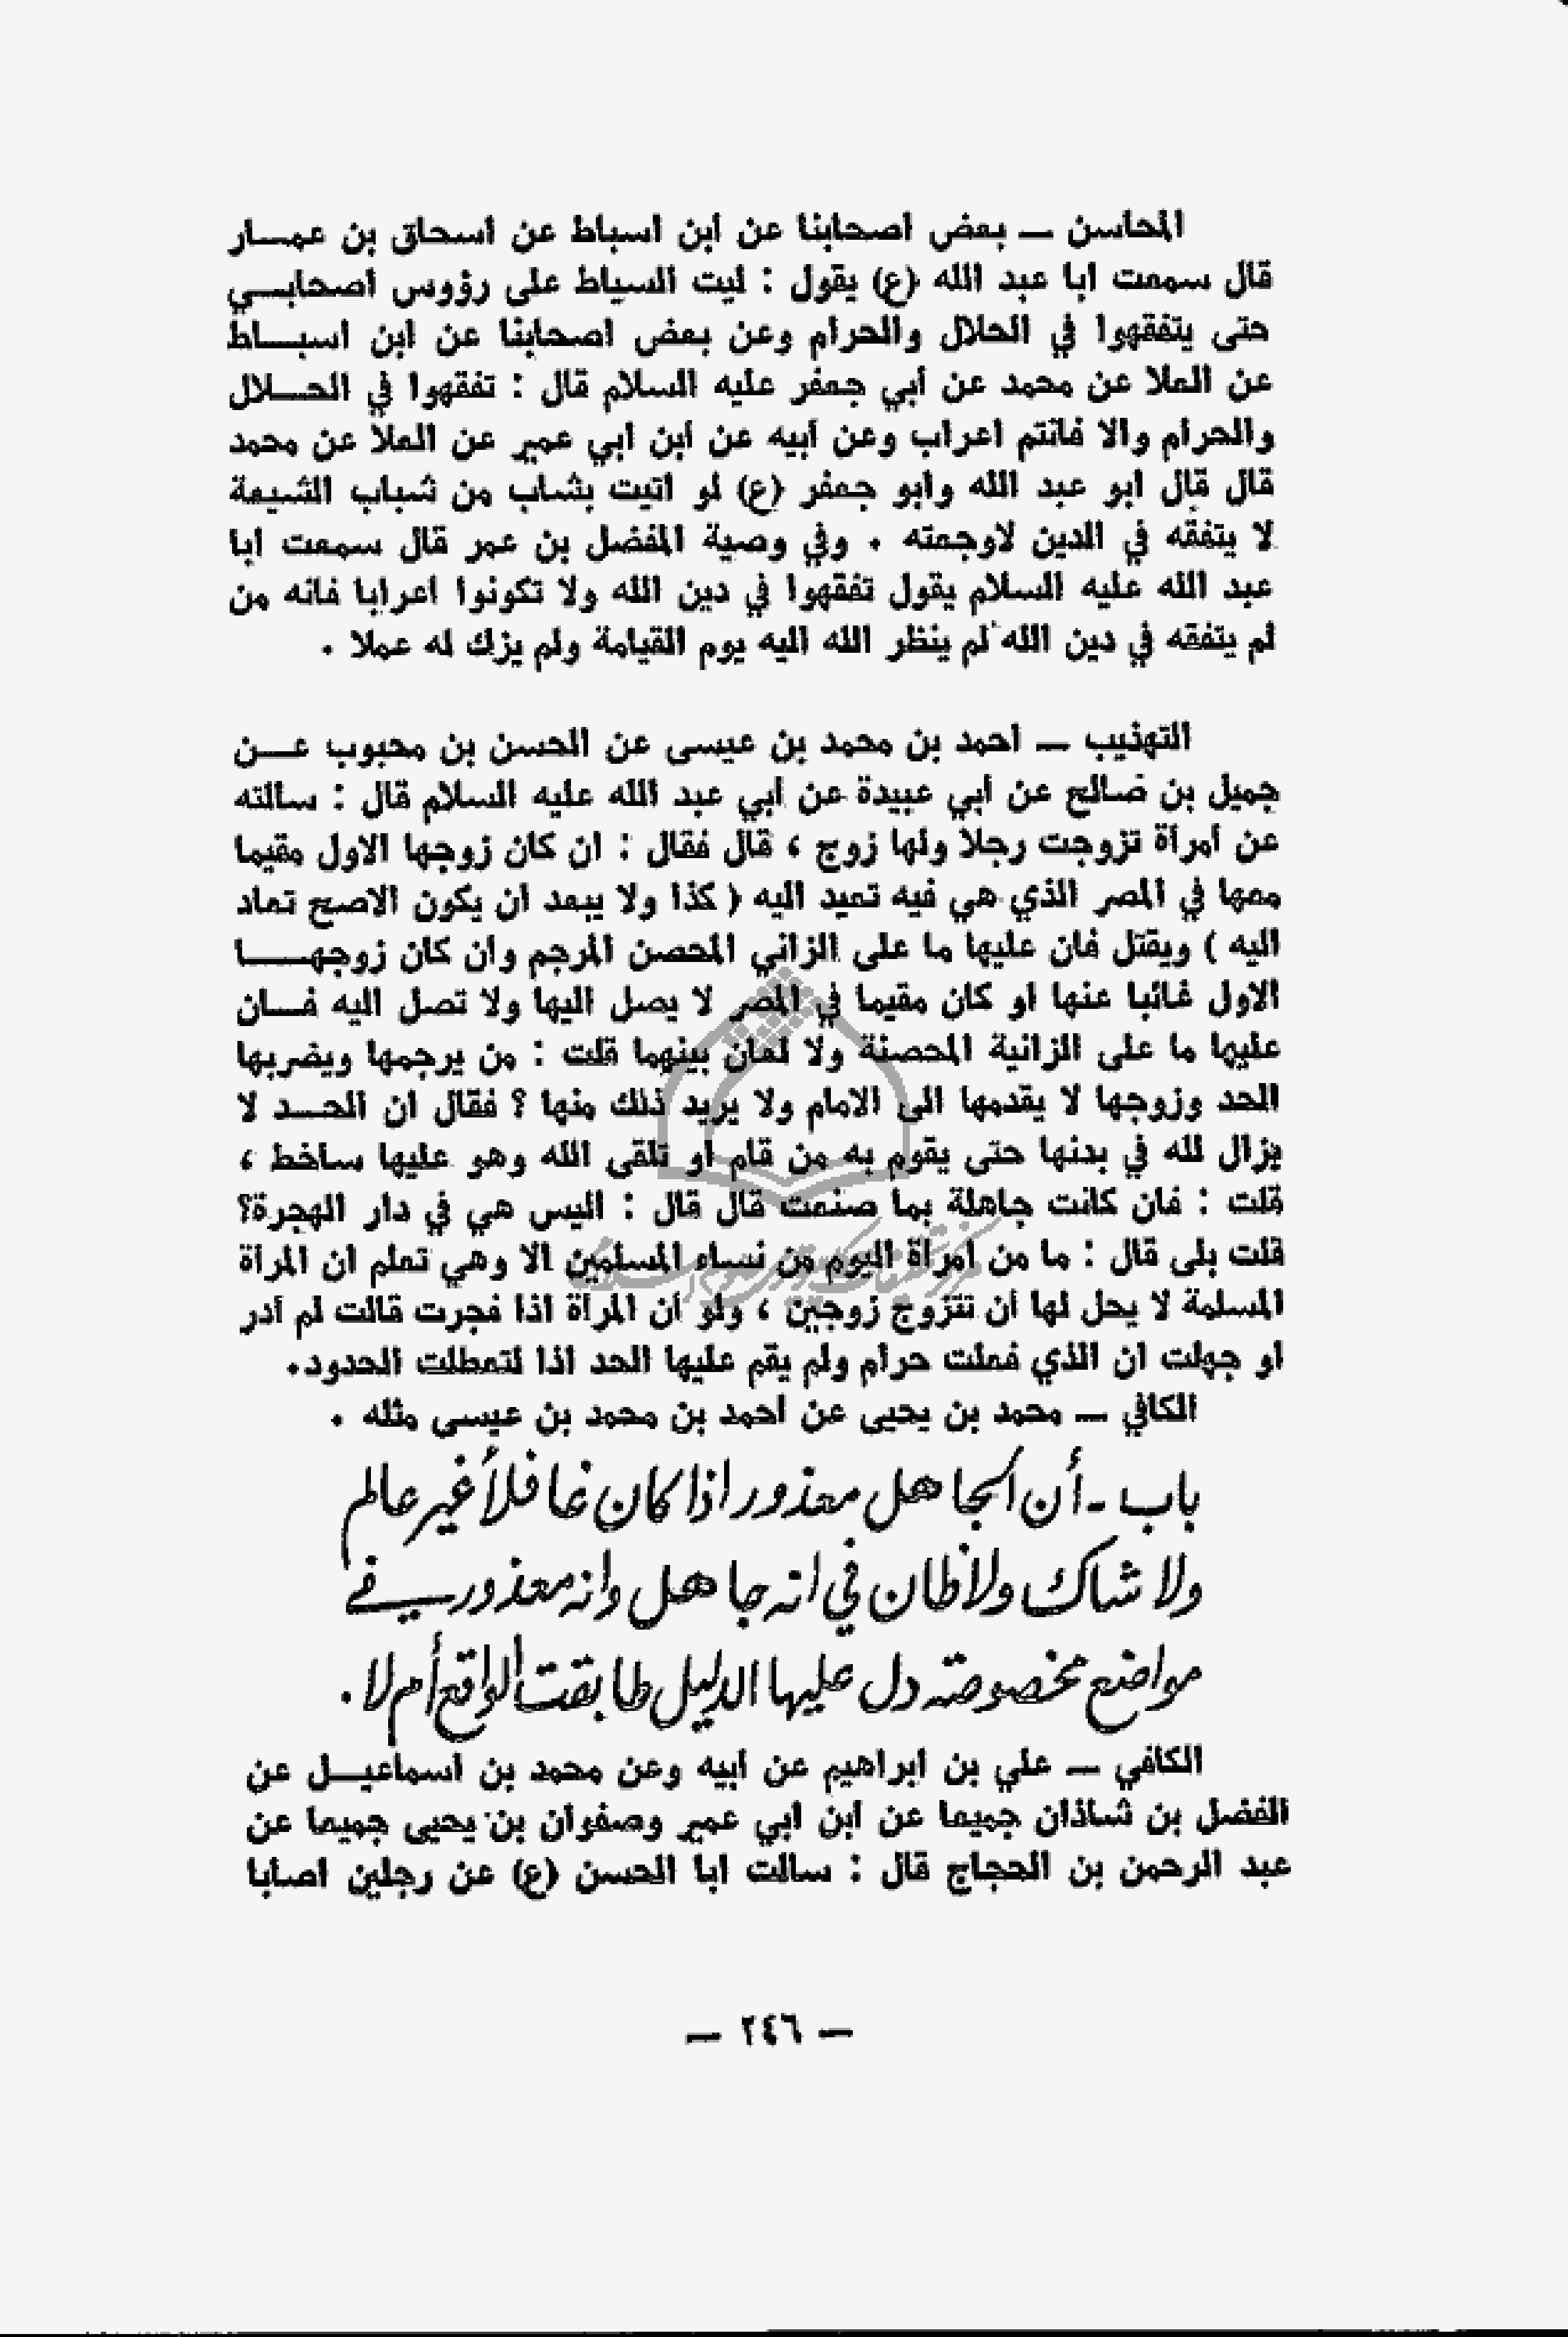 المحاسن ــ بعض اصحابنا عن ابن اسباط عن اسحاق بن عمـــار
قال سمعت ابا عبد الله (ع) يقول : ليت السياط على رؤوس اصحابـــي
حتى يتفقهوا في الحلال والحرام وعن بعض اصحابنا عن ابن اسبـــاط
عن العلا عن محمد عن أبي جعفر عليه السلام قال : تفقهوا في الحـــلال
والحرام والا فانتم اعراب وعن ابيه عن ابن ابي عمير عن العلا عن محمد
قال قال ابو عبد الله وابو جعفر (ع) لو اتيت بشاب من شباب الشيعة
لا يتفقه في الدين لاوجعته ٠ وفي وصية المفضل بن عمر قال سمعت ابا
عبد الله عليه السلام يقول تفقهوا في دين الله ولا تكونوا اعرابا فانه من
لم يتفقه في دين الله لم ينظر الله اليه يوم القيامة ولم يزك له عملا ٠
التهذيب ــ احمد بن محمد بن عيسى عن الحسن بن محبوب عـــن
جميل بن صالح عن ابي عبيدة عن ابي عبد الله عليه السلام قال : سالته
عن امرأة تزوجت رجلا ولها زوج ، قال فقال : ان كان زوجها الاول مقيما
معها في المصر الذي هي فيه تعيد اليه ( كذا ولا يبعد ان يكون الاصح تعاد
اليه ) ويقتل فان عليها ما على الزاني المحصن المرجم وان كان زوجهـــا
الاول غائبا عنها او كان مقيما في المصر لا يصل اليها ولا تصل اليه فـــان
عليها ما على الزانية المحصنة ولا لعان بينهما قلت : من يرجمها ويضربها
الحد وزوجها لا يقدمها الى الامام ولا يريد ذلك منها ؟ فقال ان الحـــد لا
يزال لله في بدنها حتى يقوم به من قام او تلقى الله وهو عليها ساخط ،
قلت : فان كانت جاهلة بما صنعت قال قال : اليس هي في دار الهجرة؟
قلت بلى قال : ما من امرأة اليوم من نساء المسلمين الا وهي تعلم ان المرأة
المسلمة لا يحل لها أن تتزوج زوجين ، ولو أن المرأة اذا فجرت قالت لم أدر
او جهلت ان الذي فعلت حرام ولم يقم عليها الحد اذا لتعطلت الحدود٠
الكافي ــ محمد بن يحيى عن احمد بن محمد بن عيسى مثله ٠
باب ـ أن الجاهل معذور اذا كان غافلاً غير عالم
ولا شاك ولا ظان في انه جاهل وانه معذور في
مواضع مخصوصة دل عليها الدليل طابقت الواقع أم لا .
الكافي ــ علي بن ابراهيم عن ابيه وعن محمد بن اسماعيـــل عن
الفضل بن شاذان جميعا عن ابن ابي عمير وصفوان بن يحيى جميعا عن
عبد الرحمن بن الحجاج قال : سالت ابا الحسن (ع) عن رجلين اصابا
ــ ٢٤٦ ــ